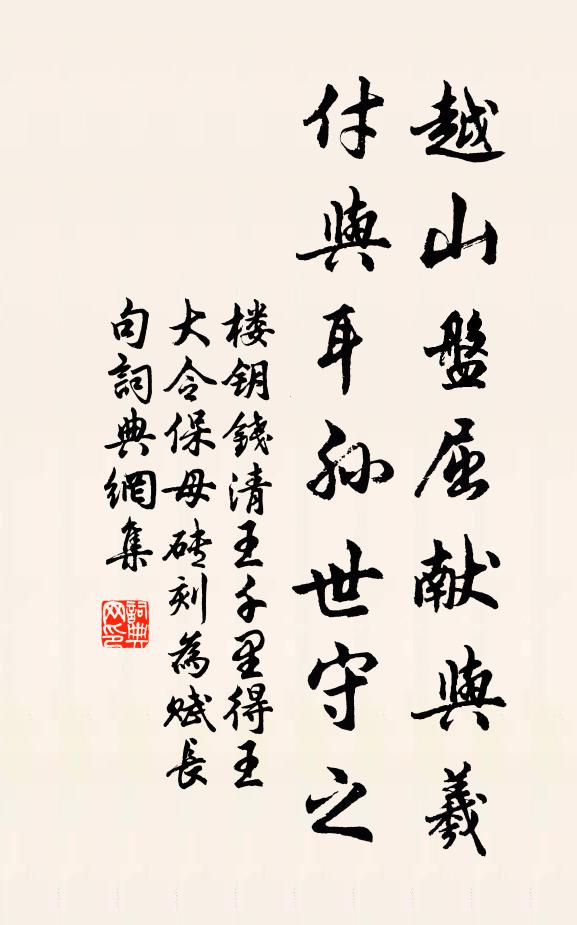 越山盤屈献與羲
付與耳孙世守之
楼钥錢清王千里得王
大令保母磚刻為赋長
句詞典網集
詞典网印